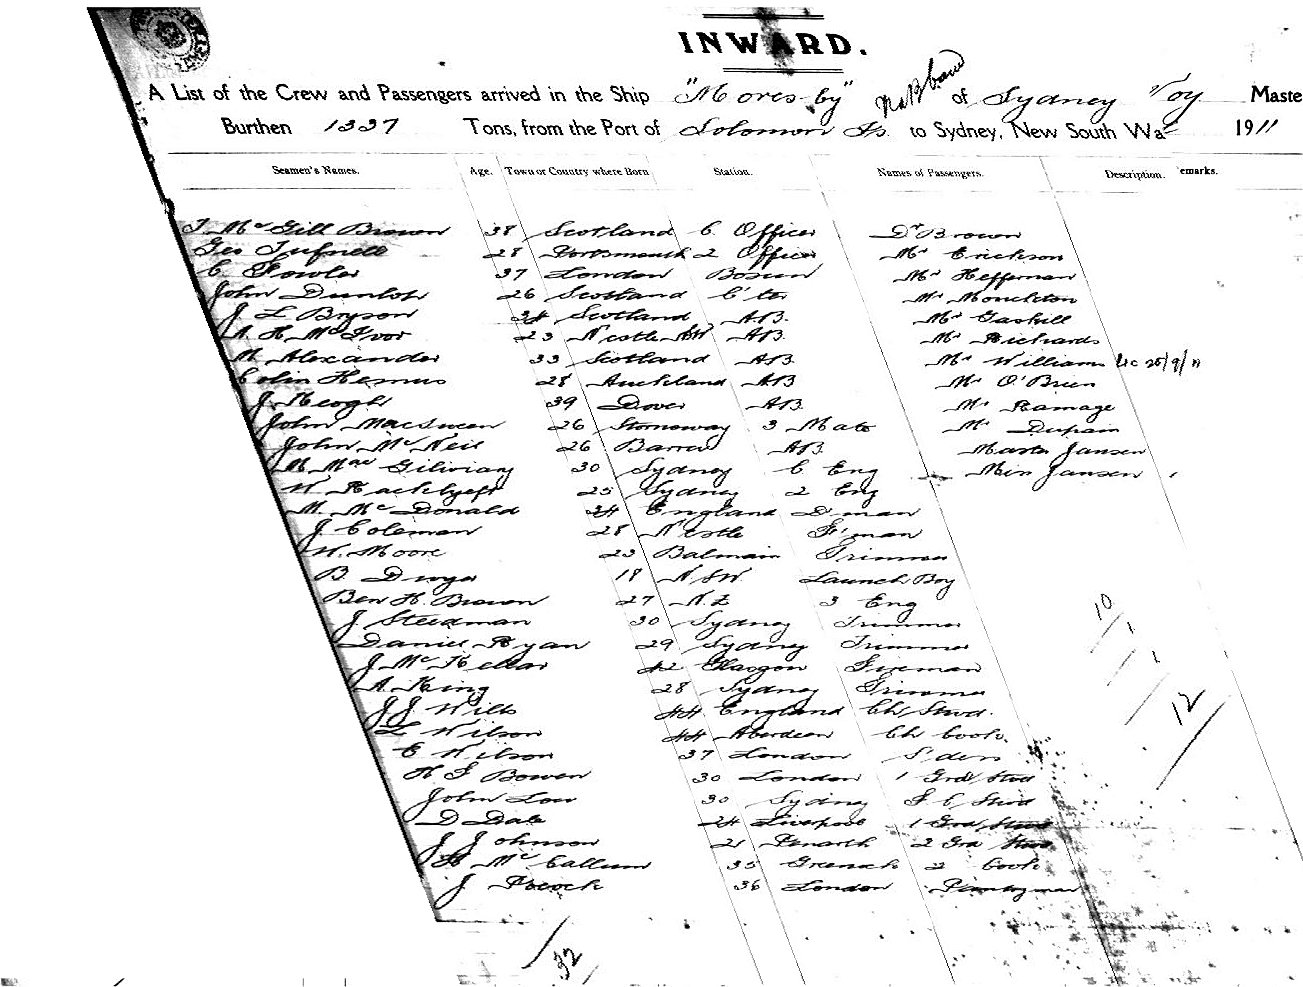 INWARD.
A List of the Crew and Passengers arrived in the Ship "Moresby" of Sydney Maste
Burthen 1337 Tons, from the Port of Solomon Is. to Sydney, New South Wa 1911
Seamen's Names. Age. Town or Country where Born Station. Names of Passengers. Description. emarks.
J. McGill Brown 38 Scotland C Officer Dr Brown
Geo Tufnell 28 Portsmouth 2 Officer Mr Erickson
C. Fowler 37 London Bosun Mr Heffernan
John Dunlop 26 Scotland C'ter Mr Monckton
J. L Bryson 34 Scotland A.B. Mr Gaskill
A. H. McIvor 23 N'castle NSW AB Mr Richards
M. Alexander 33 Scotland AB Mr Williams 25/9/11
Colin Hemus 28 Auckland AB Mr O'Brien
J. Keogh 39 Dover AB. Mr Ramage
John MacSween 26 Stornoway 3 Mate Mr
John McNeil 26 Barra AB. Master Jansen
M. Mac 30 Sydney C Eng Miss Jansen
W. 25 Sydney 2 Eng
M. McDonald 34 England D'man
J. Coleman 28 N'castle F'man
W. Moore 23 Balmain Trimmer
B. Dwyer 18 NSW Launch Boy
Ben H. Brown 27 N.Z 3 Eng
J. Steedman 30 Sydney Trimmer
Daniel Ryan 29 Sydney Trimmer
J. McKellar 42 Glasgow Fireman
A. King 28 Sydney Trimmer
J J Wills 44 England Ch Stwd.
L Wilson 44 Aberdeen Ch Cook
E Wilson 37 London
H S Bowen 30 London 1 Grd Stwd
John Low 30 Sydney S C Stwd
D Dale 24 Liverpool 1 Grd Stwd
J Johnson 21 Penarth 2 Grd Stwd
McCallum 35 Greenock 2 Cook
J Pocock 36 London Pantryman
10
1
1
12
32